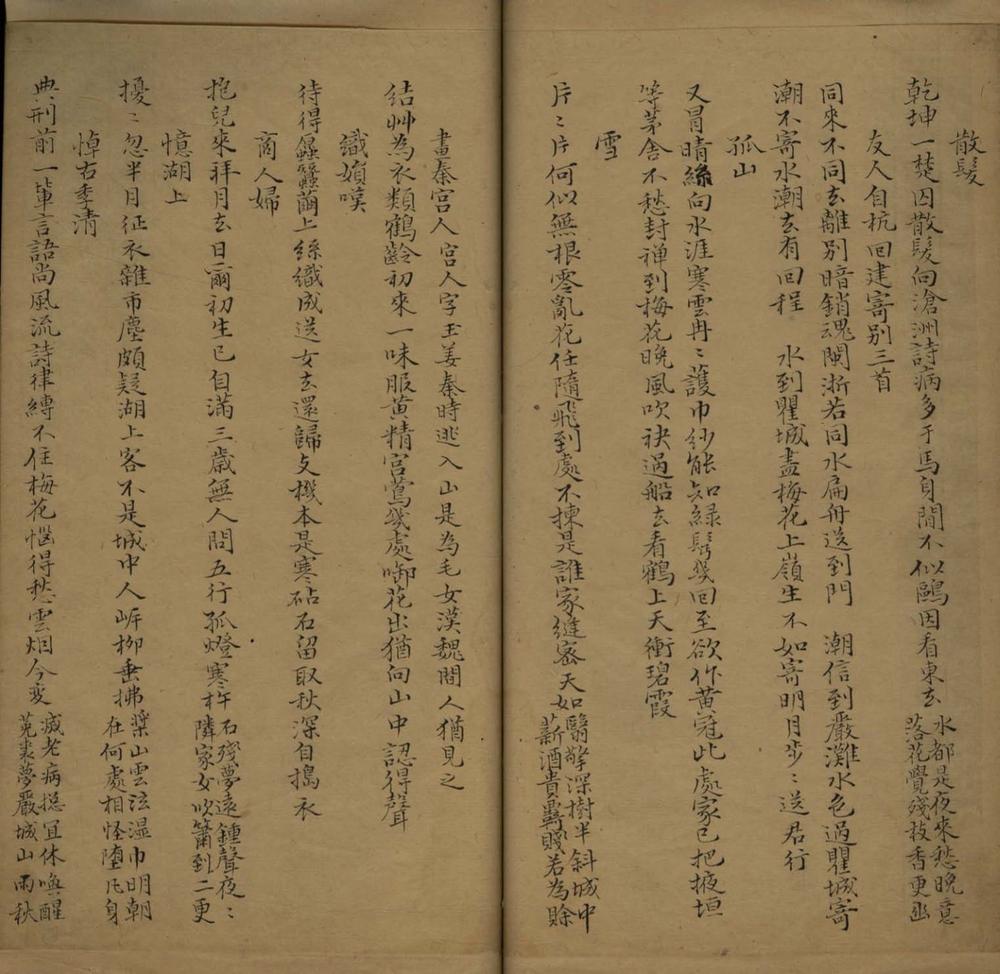 散髮
乾坤一楚囚散髮向滄洲詩病多于馬身閒不似鷗因看東去水都是夜來愁晚意落花覺殘枝香更幽
友人自杭回建寄別三首
同來不同去離別暗銷魂閩浙若同水扁舟送到門　潮信到嚴灘水色過瞿城寄
潮不寄水潮去有回程　水到瞿城盡梅花上嶺生不如寄明月步〻送君行
孤山
又冒晴絲向水涯寒雲冉〻護巾紗能知綠鬢幾回至欲作黃冠此處家已把掖垣
等茅舍不愁封禪到梅花晚風吹袂過船去看鶴上天衝碧霞
雪
片〻片何似無根零亂花任隨飛到處不揀是誰家縫密天如翳擎深樹半斜城中薪酒貴霽賤若為賒
畫秦宮人　宮人字玉姜秦時逃入山是為毛女漢魏間人猶見之
結艸為衣類鶴齡初來一味服黃精宮鶯幾處啣花出猶向山中認得聲
織嬪嘆
待得蠶蠶繭上絲織成送女去還歸支機本是寒砧石留取秋深自搗衣
商人婦
抱兒來拜月去日爾初生已自滿三歲無人問五行孤燈寒杵石殘夢遠鍾聲夜〻隣家女吹簫到二更
憶湖上
擾〻忽半月征衣雜市塵頗疑湖上客不是城中人岸柳垂拂槳山雲泫濕巾明朝在何處相怪墮凡身
悼古季清
典刑前一輩言語尚風流詩律縛不住梅花惱得愁雲烟今變滅老病摠宜休喚醒菟裘夢嚴城山雨秋